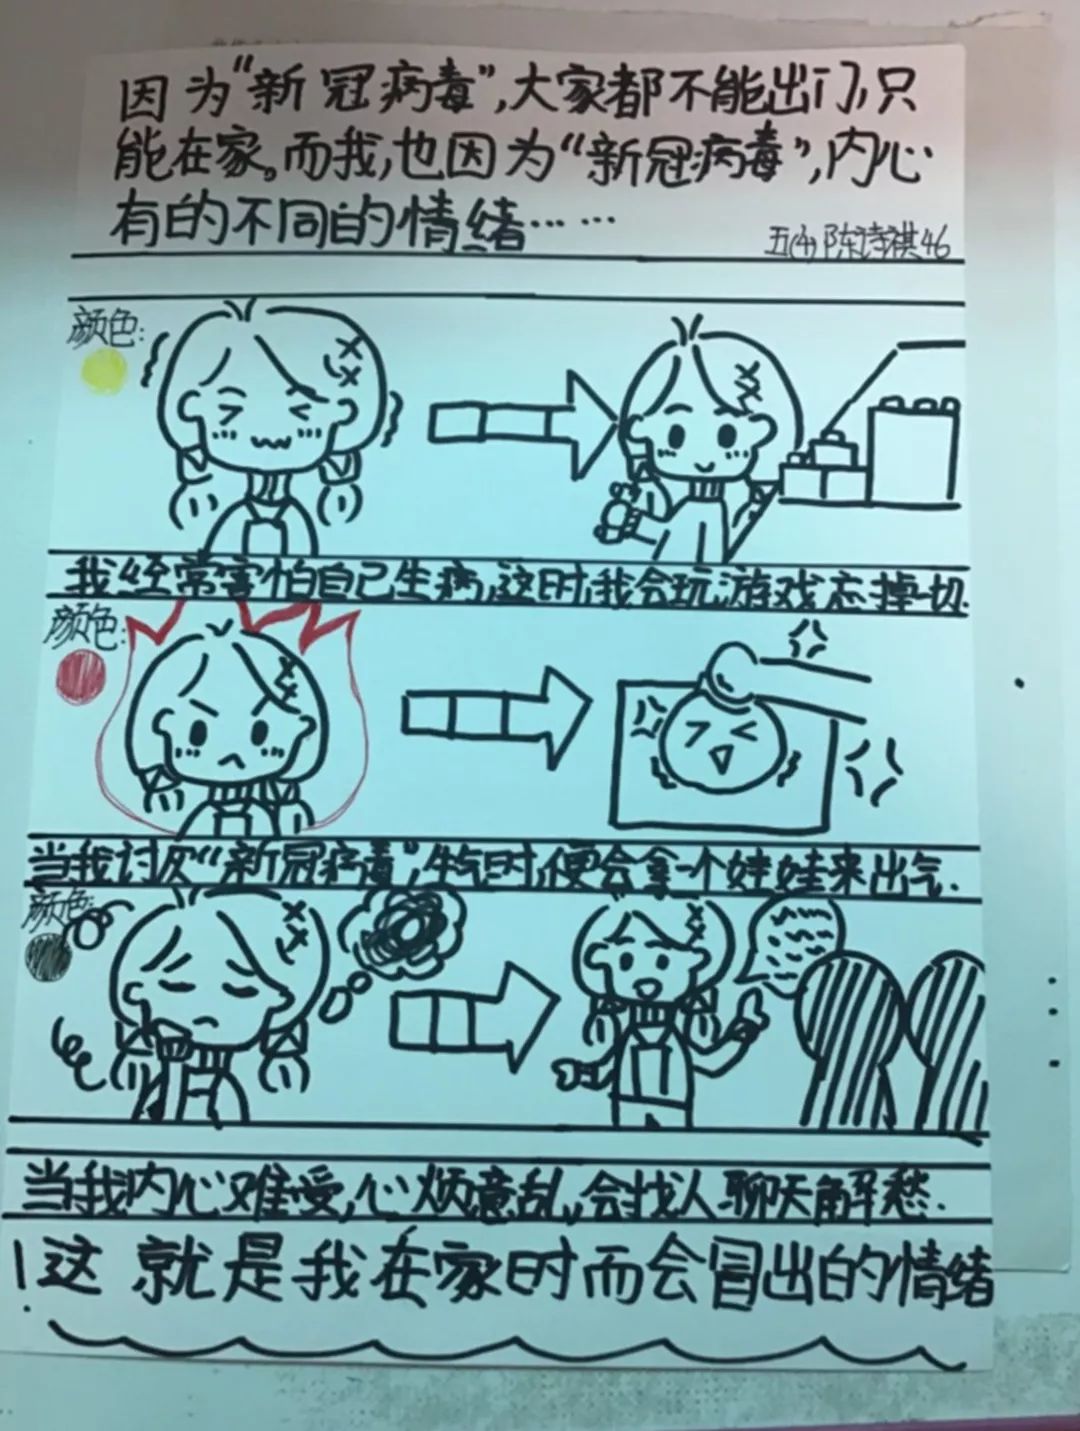 因为“新冠病毒”,大家都不能出门,只
能在家。而我,也因为“新冠病毒”,内心
有的不同的情绪……
五(4)陈诗祺46
颜色:
我经常害怕自己生病,这时,我会玩游戏忘掉一切.
颜色:
当我讨厌“新冠病毒”,生气时,便会拿一个娃娃来出气.
颜色:
当我内心难受,心烦意乱,会找人聊天解愁.
!这就是我在家时而会冒出的情绪